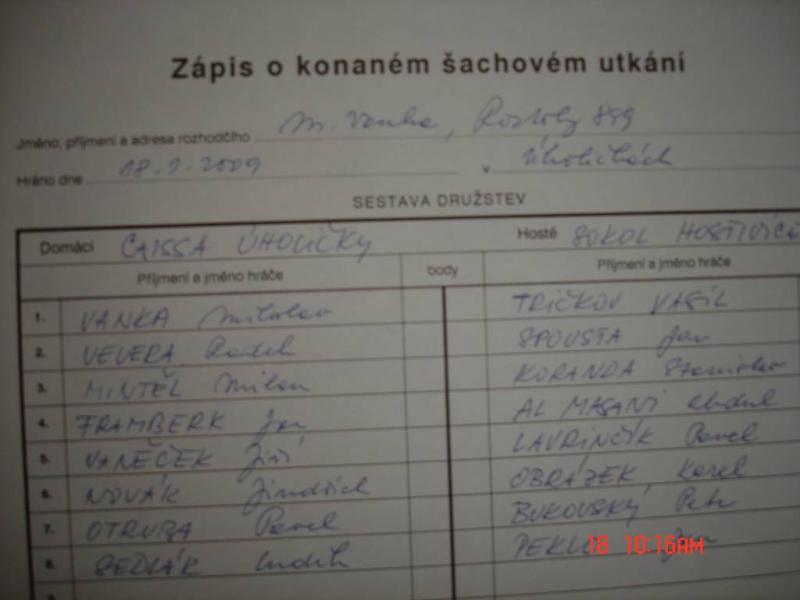 Zápis o konaném šachovém utkání
Jméno, příjmení a adresa rozhodčího M. Vanka, Roztoky 899
Hráno dne 18.1.2009 v Úholičkách
SESTAVA DRUŽSTEV
Domácí CAISSA ÚHOLIČKY Hosté SOKOL HOSTIVICE
Příjmení a jméno hráče body Příjmení a jméno hráče
1. VANKA Miloslav TRIČKOV VASIL
2. VEVERA Radek SPOUSTA Jan
3. MINTĚL Milan KORANDA Stanislav
4. FRAMBERK Jan AL MASANI abdul
5. VANĚČEK Jiří LAVRINČÍK Pavel
6. NOVÁK Jindřich OBRÁZEK Karel
7. OTRUBA Pavel BUKOVSKÝ Petr
8. SEDLÁK Luděk
18 10:16AM